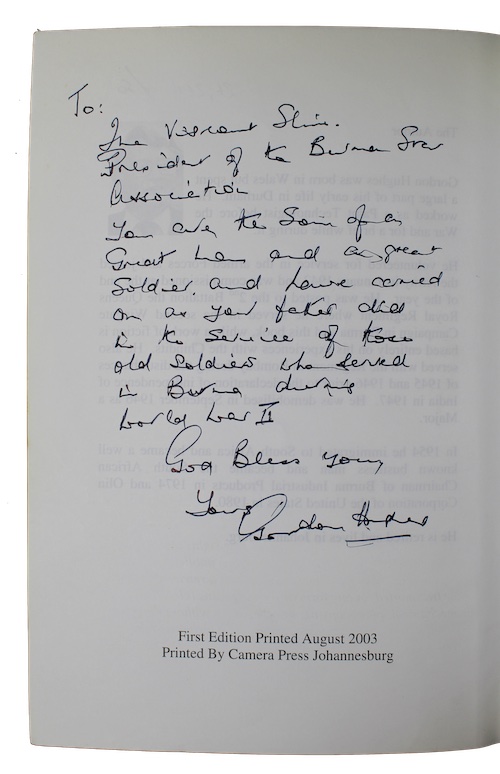 To:
The Viscount Slim.
President of the Burma Star
Association
You are the Son of a
Great Man and a great
Soldier. and have carried
on as your father did
in the Service of those
old Soldiers who served
in Burma during
World War II
God Bless you,
Yours
Gordon Hughes
First Edition Printed August 2003
Printed By Camera Press Johannesburg